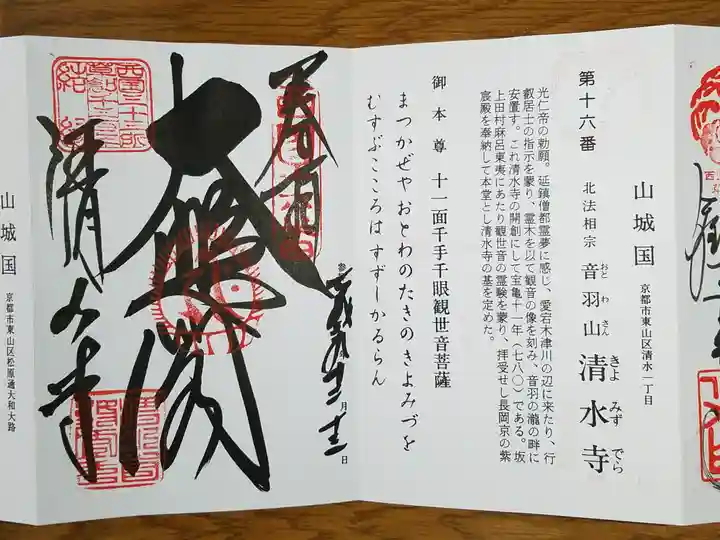 山城国
京都市東山区清水一丁目
第十六番
北法相宗
音羽山
おとわさん
清水寺
きよみずでら
光仁帝の勅願。延鎮僧都霊夢に感じ、愛宕木津川の辺に来たり、行
叡居士の指示を蒙り、霊木を以て観音の像を刻み、音羽の瀧の畔に
安置す。これ清水寺の開創にして宝亀十一年(七八〇)である。坂
上田村麻呂東夷にあたり観世音の霊験を蒙り、拝受せし長岡京の紫
宸殿を奉納して本堂とし清水寺の基を定めた。
御本尊 十一面千手千眼観世音菩薩
まつかぜやおとわのたきのきよみづを
むすぶこころはすずしかるらん
奉拝
月
日
大悲閣
清水寺
西国三十三所
草創
結縁
山城国
京都市東山区松原通大和大路